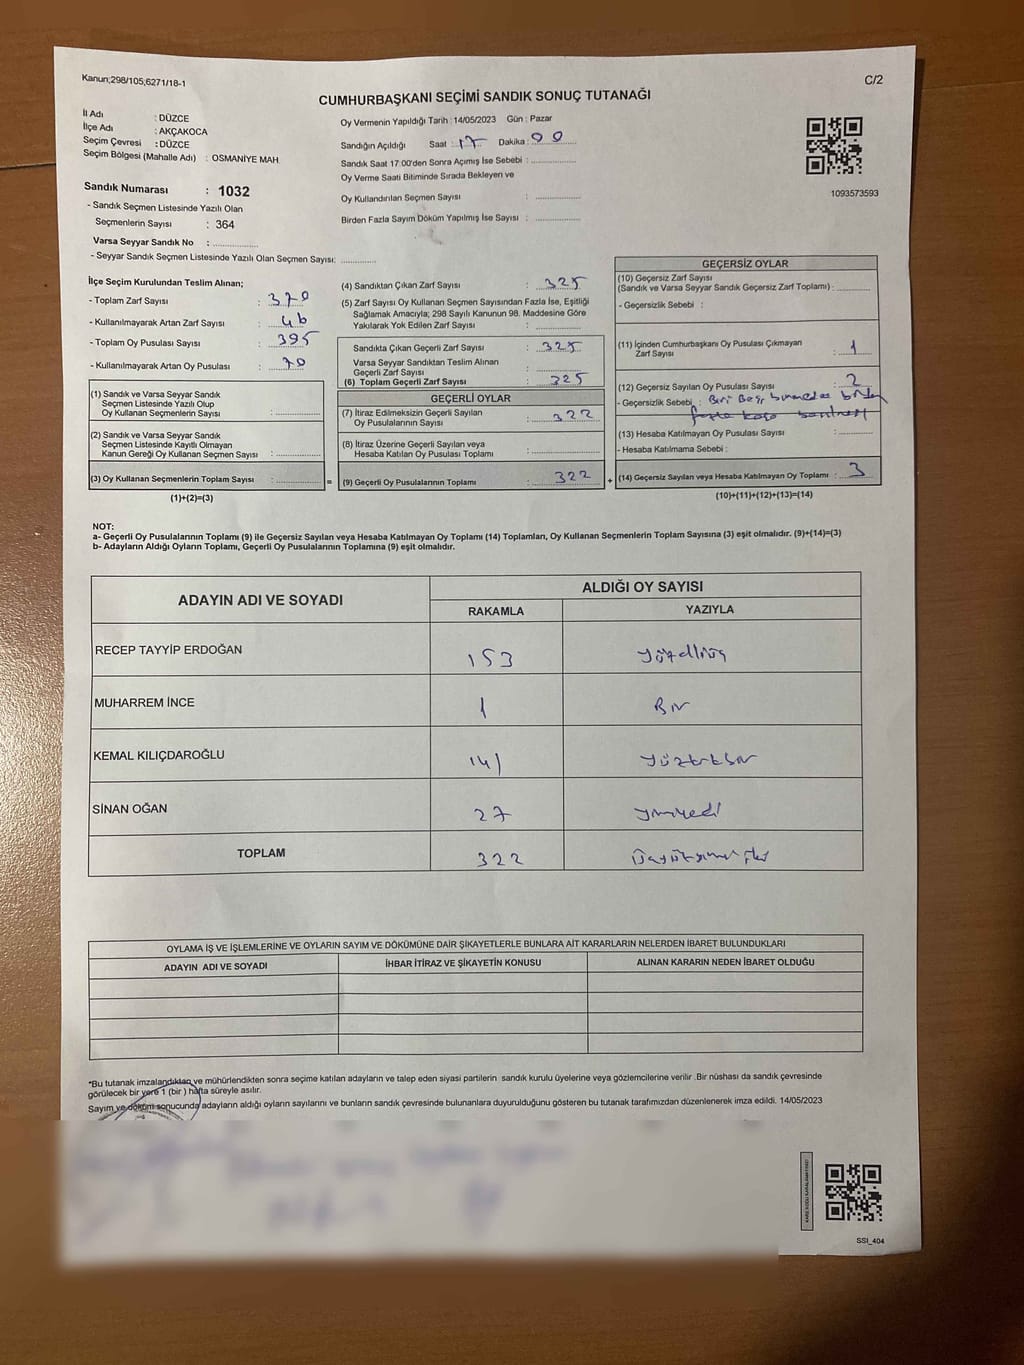 Kanun;298/105;6271/18-1
C/2
CUMHURBAŞKANI SEÇİMİ SANDIK SONUÇ TUTANAĞI
İl Adı : DÜZCE
İlçe Adı : AKÇAKOCA
Seçim Çevresi : DÜZCE
Seçim Bölgesi (Mahalle Adı) : OSMANİYE MAH.
Oy Vermenin Yapıldığı Tarih : 14/05/2023 Gün : Pazar
Sandığın Açıldığı Saat : 17 Dakika : 00
Sandık Saat 17:00'den Sonra Açımış İse Sebebi :
Oy Verme Saati Bitiminde Sırada Bekleyen ve
Oy Kullandırılan Seçmen Sayısı :
Birden Fazla Sayım Döküm Yapılmış İse Sayısı :
1093573593
Sandık Numarası : 1032
- Sandık Seçmen Listesinde Yazılı Olan
Seçmenlerin Sayısı : 364
Varsa Seyyar Sandık No :
- Seyyar Sandık Seçmen Listesinde Yazılı Olan Seçmen Sayısı:
İlçe Seçim Kurulundan Teslim Alınan;
- Toplam Zarf Sayısı : 370
- Kullanılmayarak Artan Zarf Sayısı : 46
- Toplam Oy Pusulası Sayısı : 395
- Kullanılmayarak Artan Oy Pusulası : 70
(1) Sandık ve Varsa Seyyar Sandık
Seçmen Listesinde Yazılı Olup
Oy Kullanan Seçmenlerin Sayısı :
(2) Sandık ve Varsa Seyyar Sandık
Seçmen Listesinde Kayıtlı Olmayan
Kanun Gereği Oy Kullanan Seçmen Sayısı :
(3) Oy Kullanan Seçmenlerin Toplam Sayısı :
=
(1)+(2)=(3)
(4) Sandıktan Çıkan Zarf Sayısı : 325
(5) Zarf Sayısı Oy Kullanan Seçmen Sayısından Fazla İse, Eşitliği
Sağlamak Amacıyla; 298 Sayılı Kanunun 98. Maddesine Göre
Yakılarak Yok Edilen Zarf Sayısı :
Sandıkta Çıkan Geçerli Zarf Sayısı : 325
Varsa Seyyar Sandıktan Teslim Alınan
Geçerli Zarf Sayısı :
(6) Toplam Geçerli Zarf Sayısı : 325
GEÇERLİ OYLAR
(7) İtiraz Edilmeksizin Geçerli Sayılan
Oy Pusulalarının Sayısı : 322
(8) İtiraz Üzerine Geçerli Sayılan veya
Hesaba Katılan Oy Pusulası Toplamı :
(9) Geçerli Oy Pusulalarının Toplamı : 322
+
GEÇERSİZ OYLAR
(10) Geçersiz Zarf Sayısı
(Sandık ve Varsa Seyyar Sandık Geçersiz Zarf Toplamı) :
- Geçersizlik Sebebi :
(11) İçinden Cumhurbaşkanı Oy Pusulası Çıkmayan
Zarf Sayısı : 1
(12) Geçersiz Sayılan Oy Pusulası Sayısı : 2
- Geçersizlik Sebebi : Biri
(13) Hesaba Katılmayan Oy Pusulası Sayısı :
- Hesaba Katılmama Sebebi :
(14) Geçersiz Sayılan veya Hesaba Katılmayan Oy Toplamı : 3
(10)+(11)+(12)+(13)=(14)
NOT:
a- Geçerli Oy Pusulalarının Toplamı (9) ile Geçersiz Sayılan veya Hesaba Katılmayan Oy Toplamı (14) Toplamları, Oy Kullanan Seçmenlerin Toplam Sayısına (3) eşit olmalıdır. (9)+(14)=(3)
b- Adayların Aldığı Oyların Toplamı, Geçerli Oy Pusulalarının Toplamına (9) eşit olmalıdır.
ADAYIN ADI VE SOYADI
ALDIĞI OY SAYISI
RAKAMLA YAZIYLA
RECEP TAYYİP ERDOĞAN 153 yüzelliüç
MUHARREM İNCE 1 Bir
KEMAL KILIÇDAROĞLU 141 yüzkırkbir
SİNAN OĞAN 27 yirmiyedi
TOPLAM 322 üçyüzyirmi iki
OYLAMA İŞ VE İŞLEMLERİNE VE OYLARIN SAYIM VE DÖKÜMÜNE DAİR ŞİKAYETLERLE BUNLARA AİT KARARLARIN NELERDEN İBARET BULUNDUKLARI
ADAYIN ADI VE SOYADI İHBAR İTİRAZ VE ŞİKAYETİN KONUSU ALINAN KARARIN NEDEN İBARET OLDUĞU
*Bu tutanak imzalandıktan ve mühürlendikten sonra seçime katılan adayların ve talep eden siyasi partilerin sandık kurulu üyelerine veya gözlemcilerine verilir .Bir nüshası da sandık çevresinde
görülecek bir yere 1 (bir ) hafta süreyle asılır.
Sayım ve döküm sonucunda adayların aldığı oyların sayılarını ve bunların sandık çevresinde bulunanlara duyurulduğunu gösteren bu tutanak tarafımızdan düzenlenerek imza edildi. 14/05/2023
KARE KODU KARALAMAYINIZ!
SSI_404